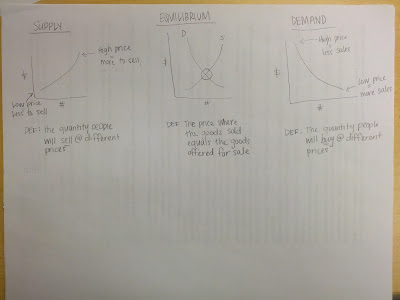 SUPPLY
High price
more to sell
$
Low price
less to sell
#
DEF: The quantity people
will sell @ different
prices
EQUILIBRIUM
D
S
$
#
DEF: The price where
the goods sold
equals the goods
offered for sale
DEMAND
High price
less sales
$
Low price
more sales
#
DEF: The quantity people
will buy @ different
prices